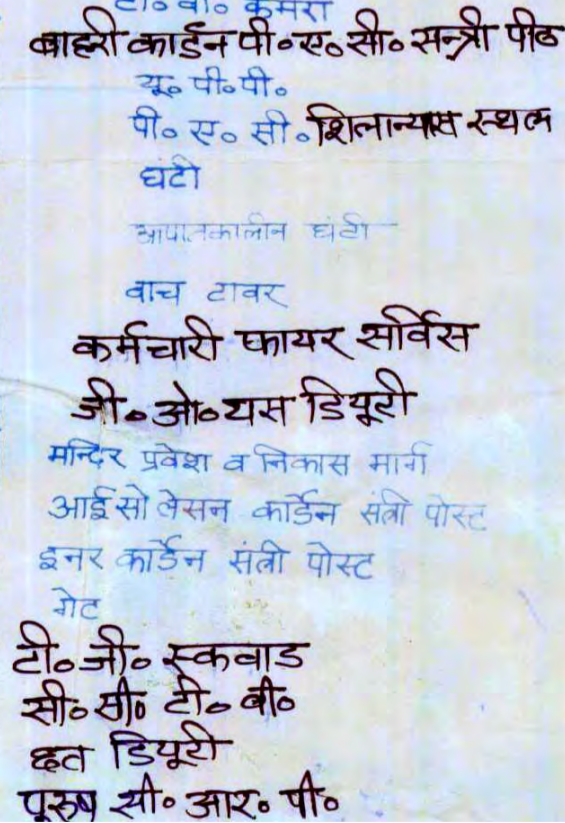 टी॰ वी॰ कैमरा
बाहरी कार्डन पी॰ ए॰ सी॰ सन्त्री पीठ
यू॰ पी॰ पी॰
पी॰ ए॰ सी॰ शिलान्यास स्थल
घंटी
आपातकालीन घंटी
वाच टावर
कर्मचारी फायर सर्विस
जी॰ ओ॰ यस डियूटी
मन्दिर प्रवेश व निकास मार्ग
आईसोलेसन कार्डेन संत्री पोस्ट
इनर कार्डेन संत्री पोस्ट
गेट
टी॰ जी॰ स्कवाड
सी॰ सी॰ टी॰ बी॰
छत डियूटी
पुरूष सी॰ आर॰ पी॰